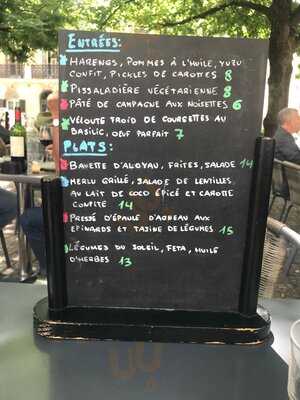 ENTRÉES:
HARENGS, POMMES À L'HUILE, YUZU
CONFIT, PICKLES DE CAROTTES 8
PISSALADIÈRE VÉGÉTARIENNE 8
PÂTÉ DE CAMPAGNE AUX NOISETTES 6
VELOUTÉ FROID DE COURGETTES AU
BASILIC, OEUF PARFAIT 7
PLATS:
BAVETTE D'ALOYAU, FRITES, SALADE 14
MERLU GRILLÉ, SALADE DE LENTILLES,
AU LAIT DE COCO ÉPICÉ ET CAROTTE
CONFITE 14
PRESSÉ D'ÉPAULE D'AGNEAU AUX
EPINARDS ET TAJINE DE LÉGUMES 15
LÉGUMES DU SOLEIL, FETA, HUILE
D'HERBES 13